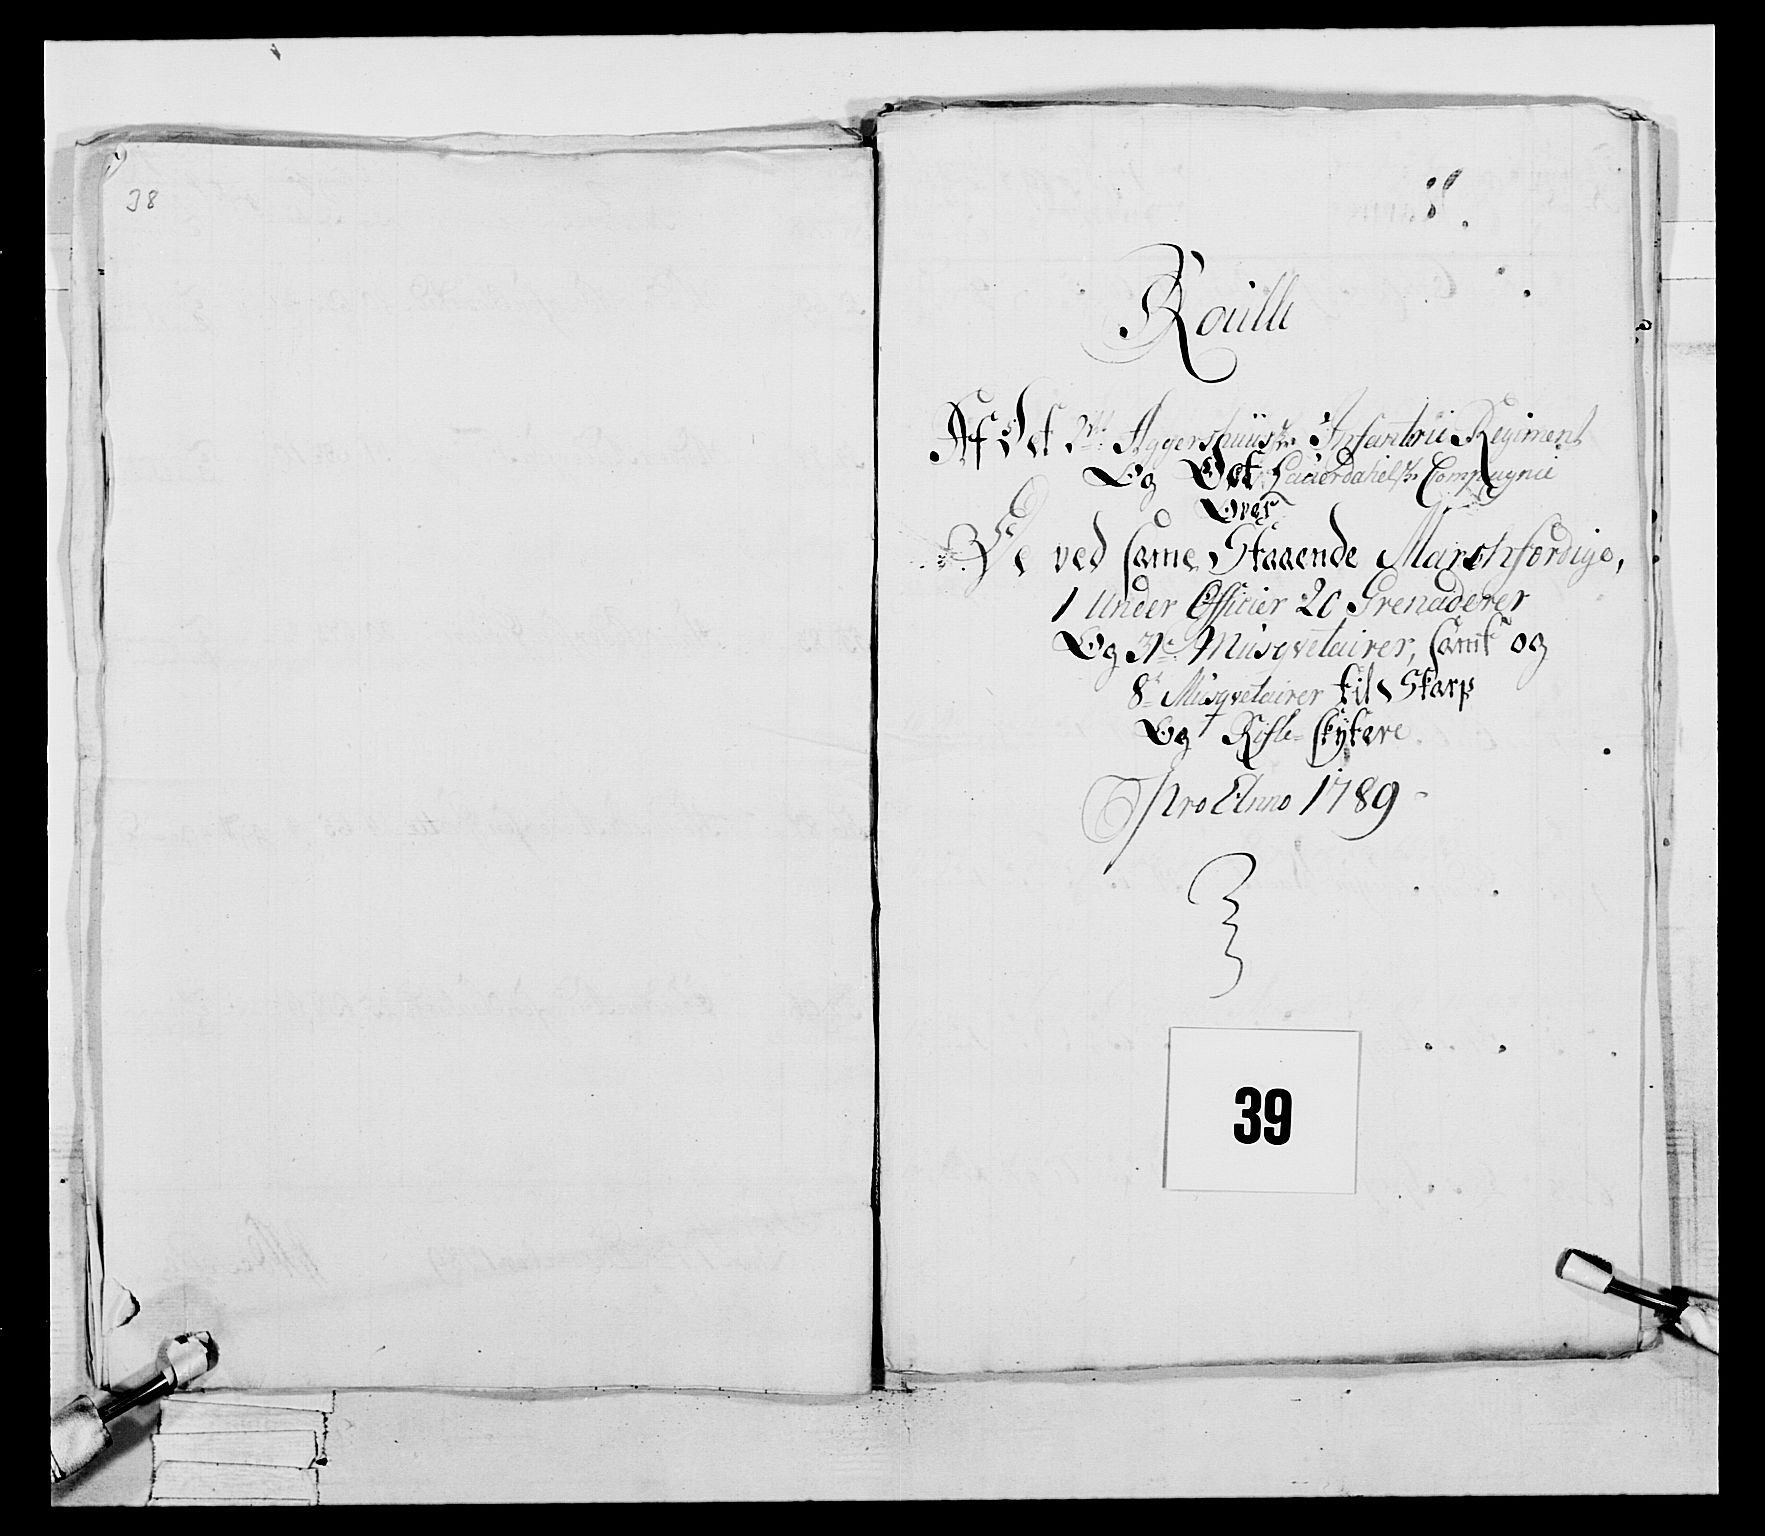 38
Roulle
Af Det 2det Aggershuusske Infanterie Regiment
Og Det Compagnie
Over
De ved same Staaende Marschfordige,
1 Under Officier 20 Grenaderer
Og Musqvetairer, samt og
8t Musqvetairer til Skarp
Og Rifle-skytere
Pro Anno 1789
39